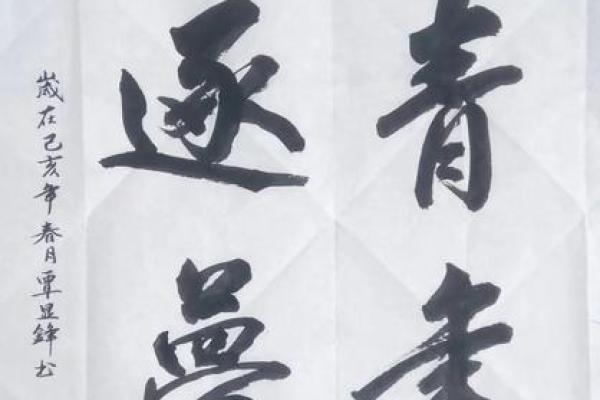 青春
逐夢
歲在己亥年春月覃显鋒书